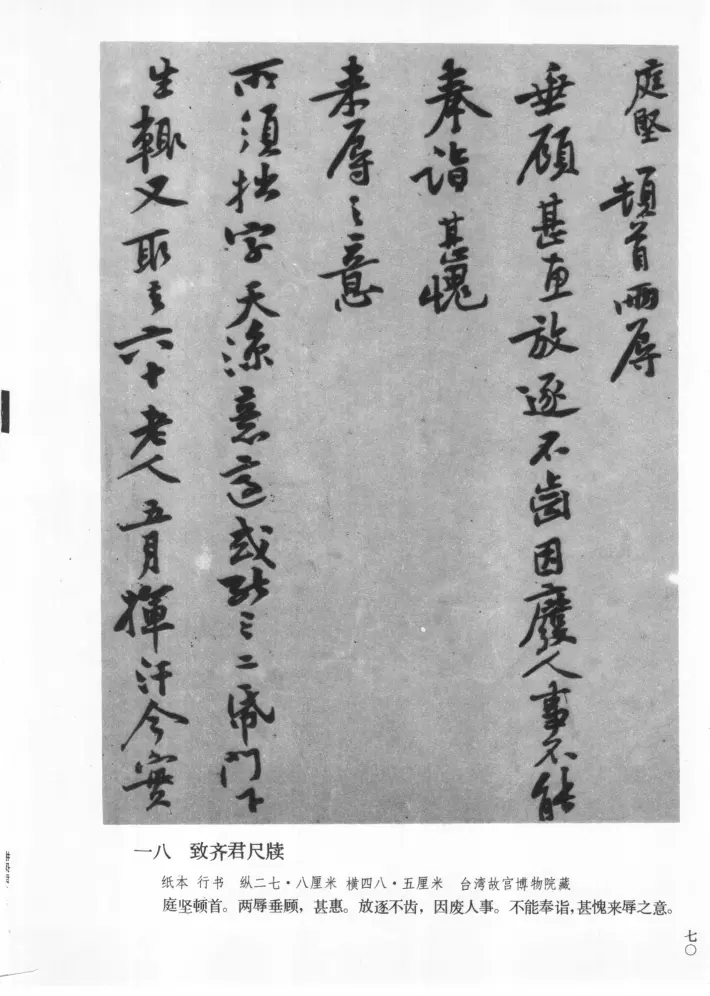 庭堅頓首兩辱
垂顧甚惠放逐不齒因廢人事不能
奉詣甚愧
来辱之意
所須拙字天凉意適或能三二紙門下
生輙又取去六十老人五月揮汗今實
一八 致齐君尺牍
纸本 行书 纵二七·八厘米 横四八·五厘米 台湾故宫博物院藏
庭坚顿首。两辱垂顾，甚惠。放逐不齿，因废人事。不能奉诣，甚愧来辱之意。
七〇